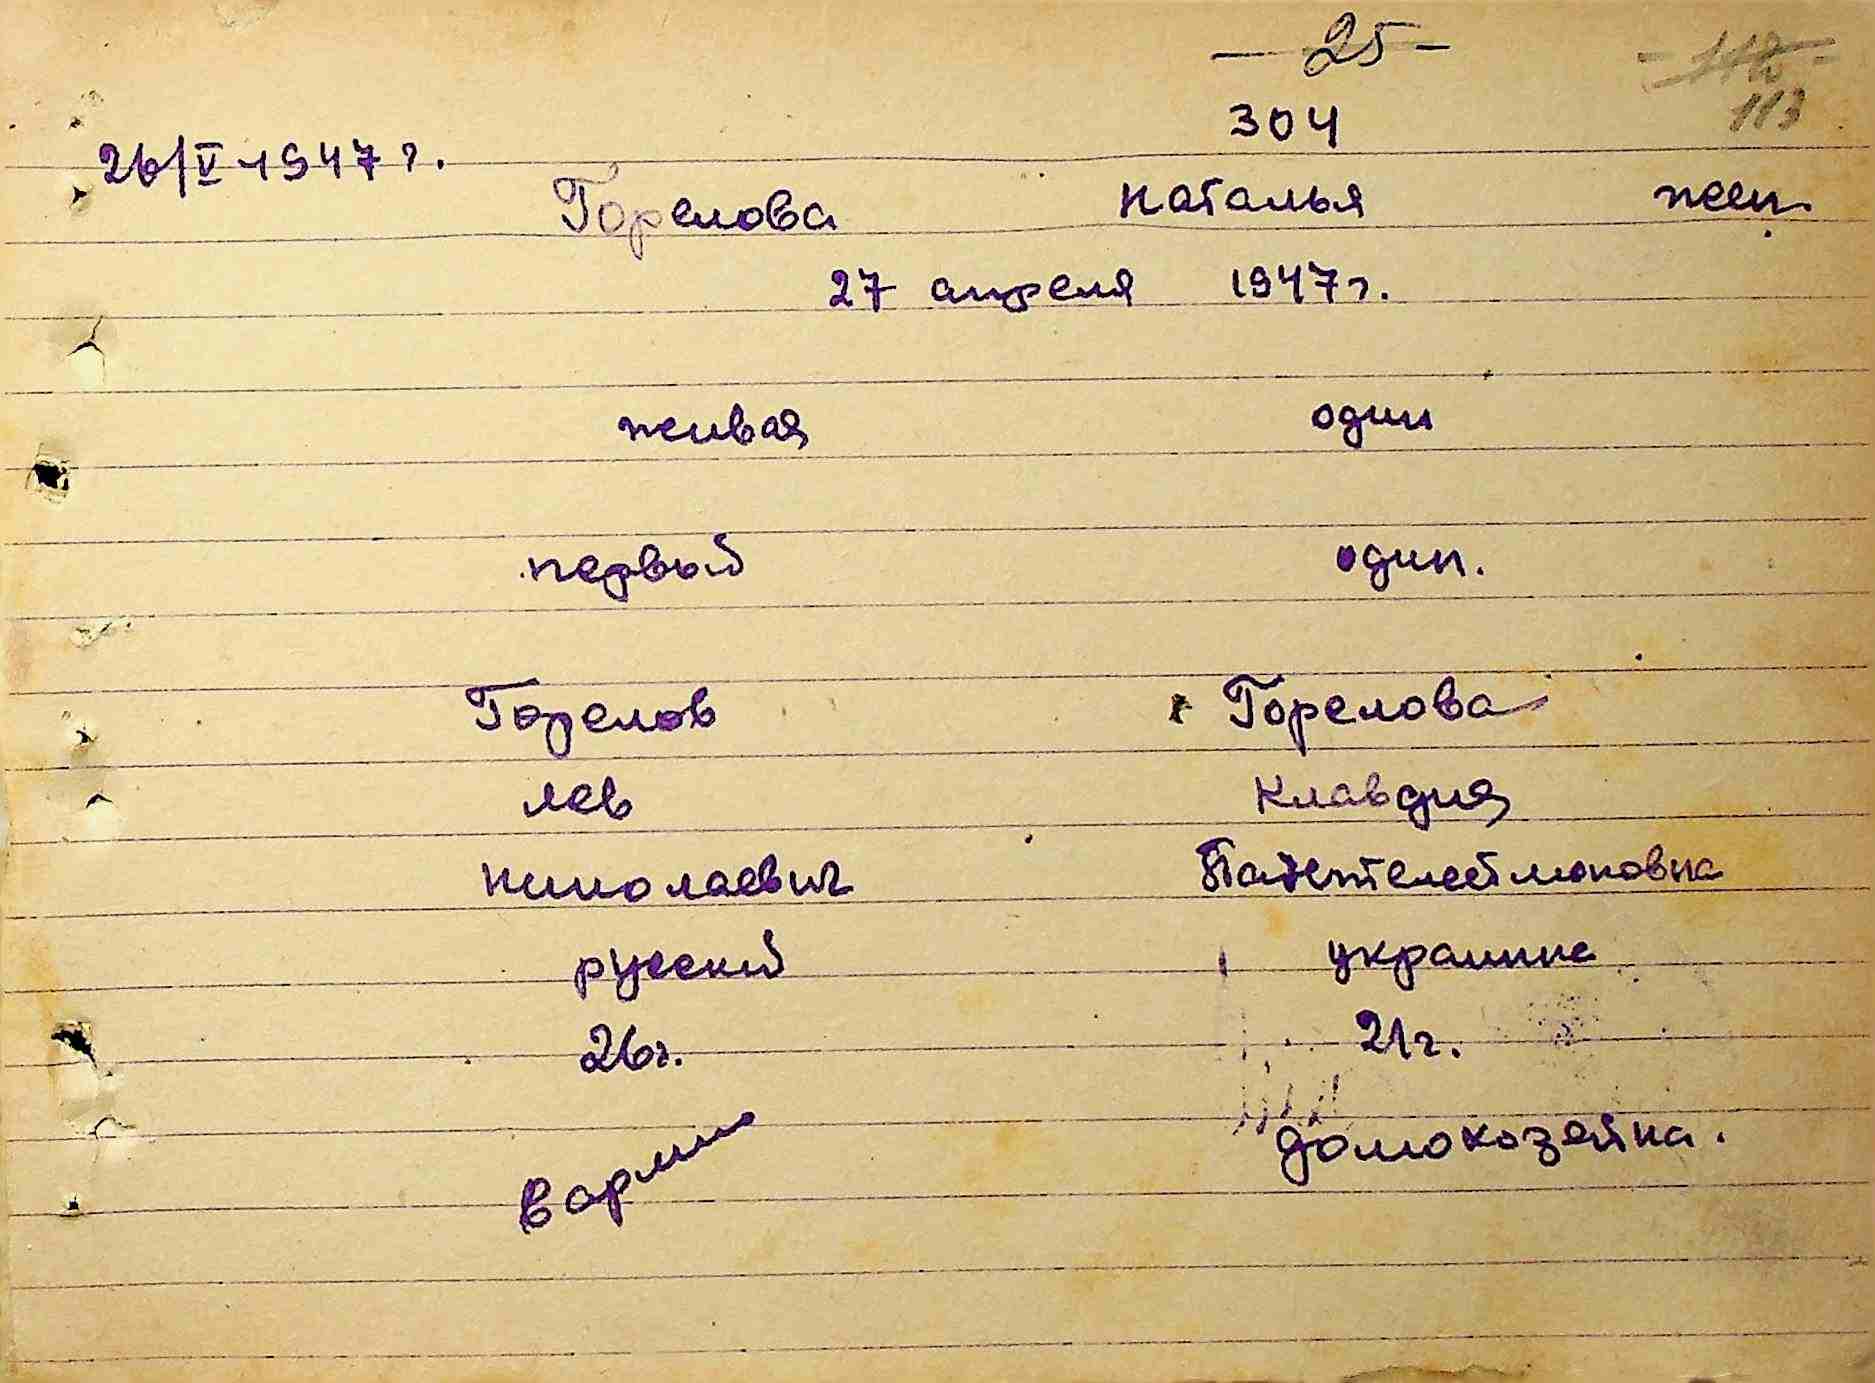 - 25 -
113
304
26/V-1947 г.
Горелова Наталья жен.
27 апреля 1947 г.
живая один
первый один.
Горелов Горелова
Лев Клавдия
Николаевич
русский украинка
26 г. 21 г.
в армии домохозяйка.